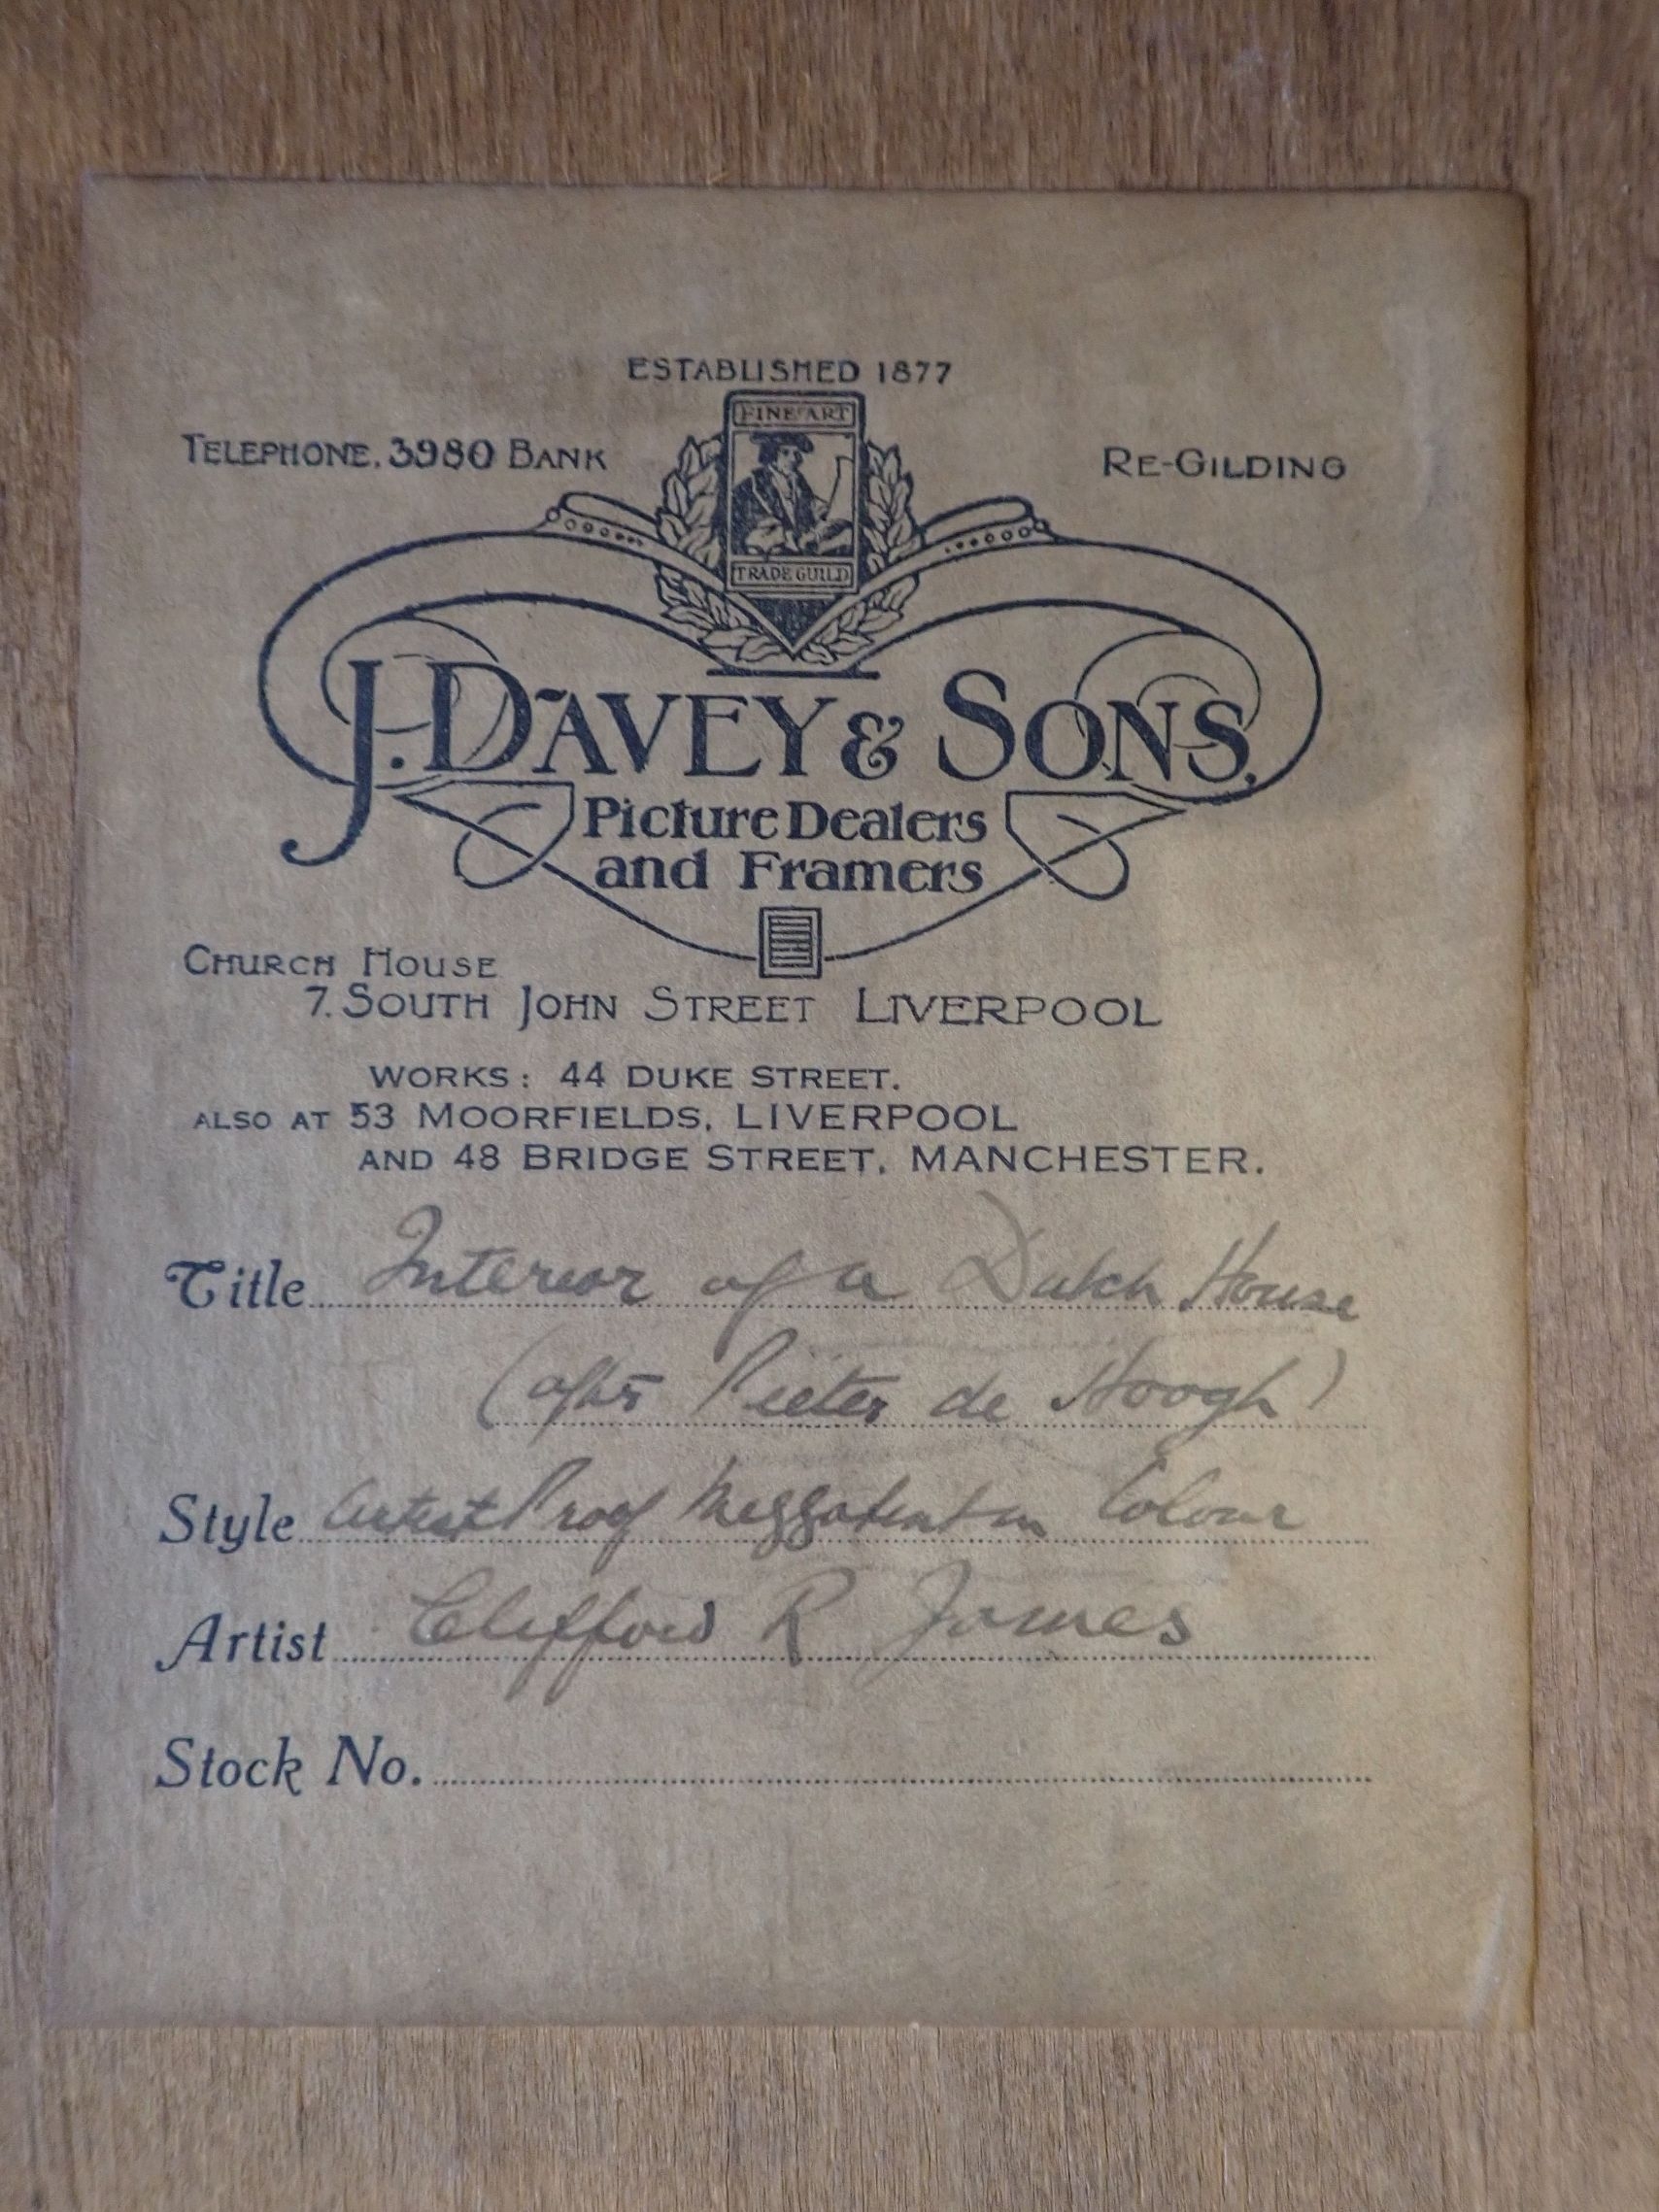 ESTABLISHED 1877
FINE ART
TELEPHONE. 3980 BANK
RE-GILDING
TRADE GUILD
J. DAVEY & SONS,
Picture Dealers
and Framers
CHURCH HOUSE
7. SOUTH JOHN STREET LIVERPOOL
WORKS: 44 DUKE STREET.
ALSO AT 53 MOORFIELDS, LIVERPOOL
AND 48 BRIDGE STREET, MANCHESTER.
Title Interior of a Dutch House
(after Pieter de Hoogh)
Style Artist Proof Mezzotint in Colour
Artist Clifford R James
Stock No.